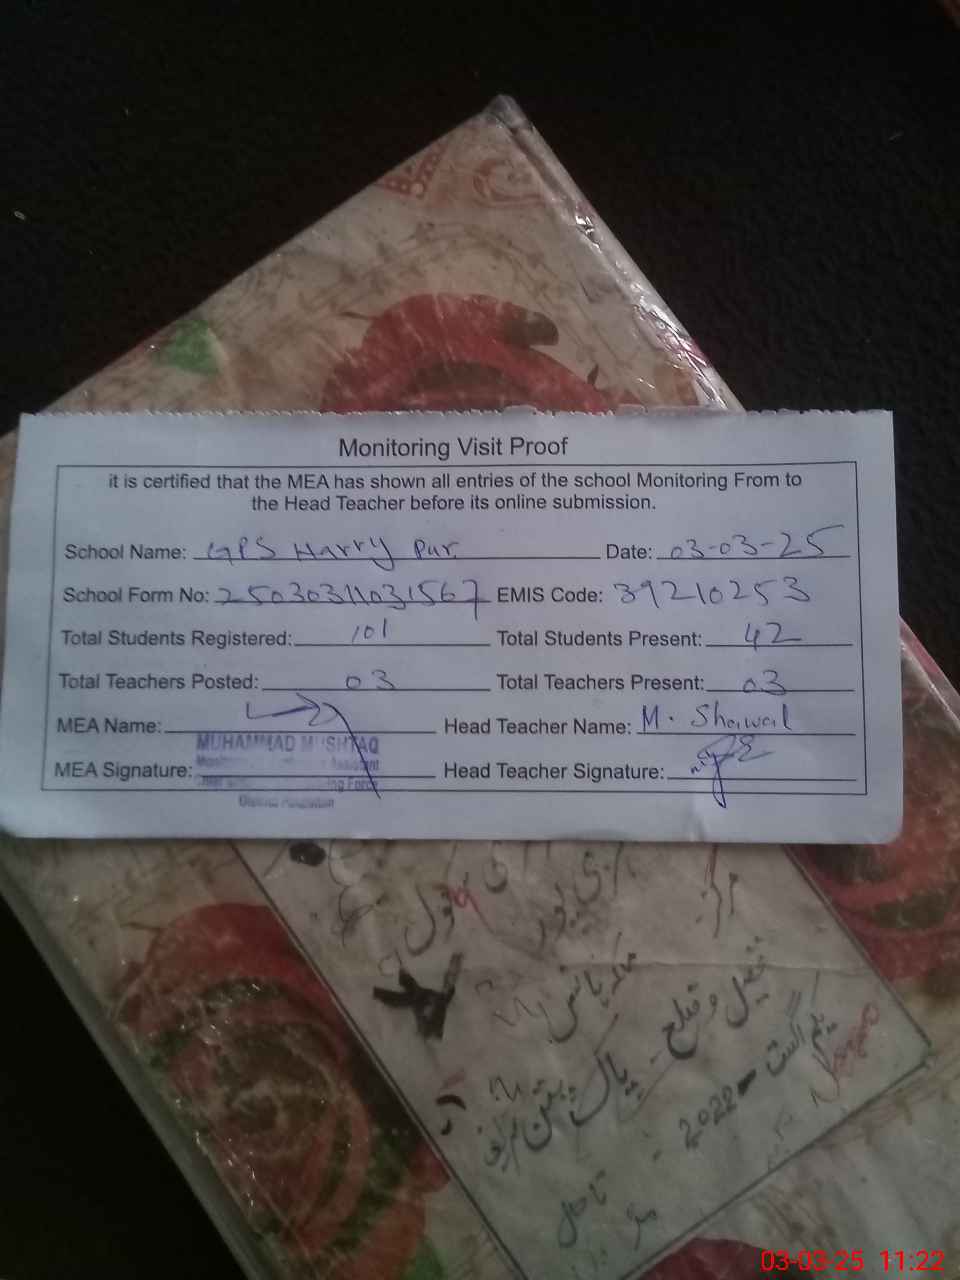 Monitoring Visit Proof
it is certified that the MEA has shown all entries of the school Monitoring From to
the Head Teacher before its online submission.
School Name: GPS Harry Pur. Date: 03-03-25
School Form No: 25030311031567 EMIS Code: 39210253
Total Students Registered: 101 Total Students Present: 42
Total Teachers Posted: 03 Total Teachers Present: 03
MEA Name: Head Teacher Name: M. Shawal
MUHAMMAD MUSHTAQ
MEA Signature: Head Teacher Signature:
District Pakpattan
مرکز
ملکہ ہانس
تحصیل و ضلع - پاکپتن شریف
یکم اگست 2022 -
03-03-25 11:22